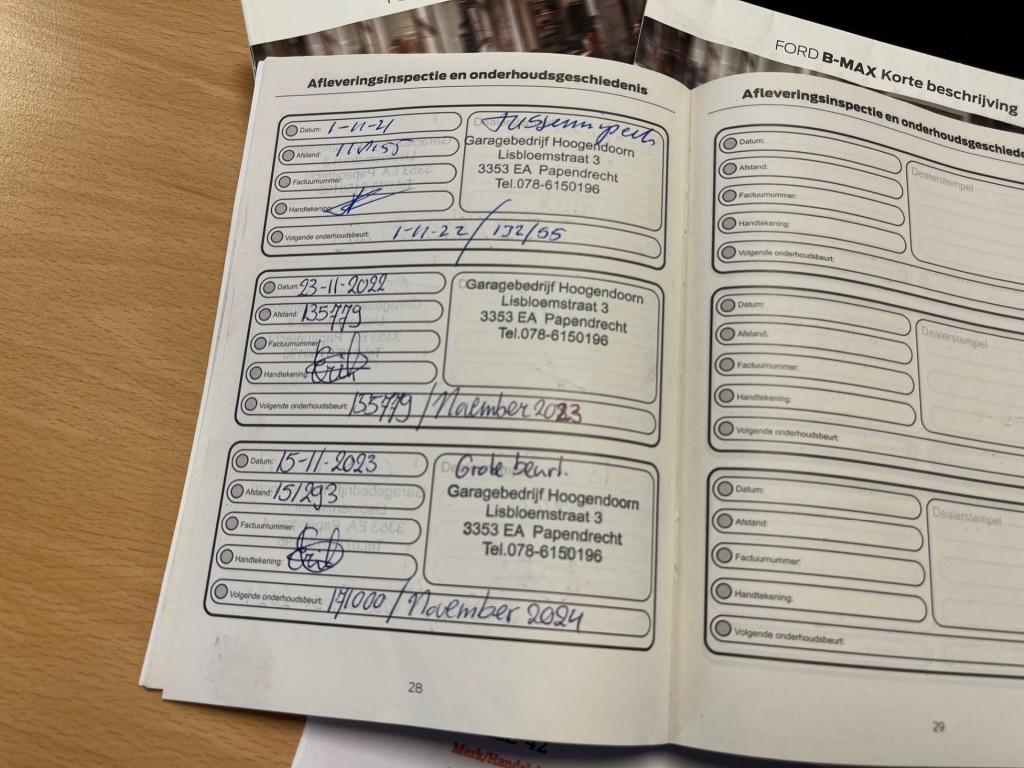 FORD B-MAX Korte beschrijving
Afleveringsinspectie en onderhoudsgeschiedenis
Datum: 1-11-21
Afstand:
Factuurnummer:
Handtekening:
Garagebedrijf Hoogendoorn
Lisbloemstraat 3
3353 EA Papendrecht
Tel.078-6150196
Volgende onderhoudsbeurt: 1-11-22 / 132/55
Datum: 23-11-2022
Afstand: 135779
Factuurnummer:
Handtekening:
Garagebedrijf Hoogendoorn
Lisbloemstraat 3
3353 EA Papendrecht
Tel.078-6150196
Volgende onderhoudsbeurt: 135779 / November 2023
Datum: 15-11-2023
Afstand: 151293
Factuurnummer:
Handtekening:
Grote beurt.
Garagebedrijf Hoogendoorn
Lisbloemstraat 3
3353 EA Papendrecht
Tel.078-6150196
Volgende onderhoudsbeurt: 171000 / November 2024
28
Afleveringsinspectie en onderhoudsgeschiede
Datum:
Afstand:
Factuurnummer:
Handtekening:
Volgende onderhoudsbeurt:
Dealerstempel
Datum:
Afstand:
Factuurnummer:
Handtekening:
Volgende onderhoudsbeurt:
Dealerstempel
Datum:
Afstand:
Factuurnummer:
Handtekening:
Volgende onderhoudsbeurt:
Dealerstempel
29
Merk/Handel